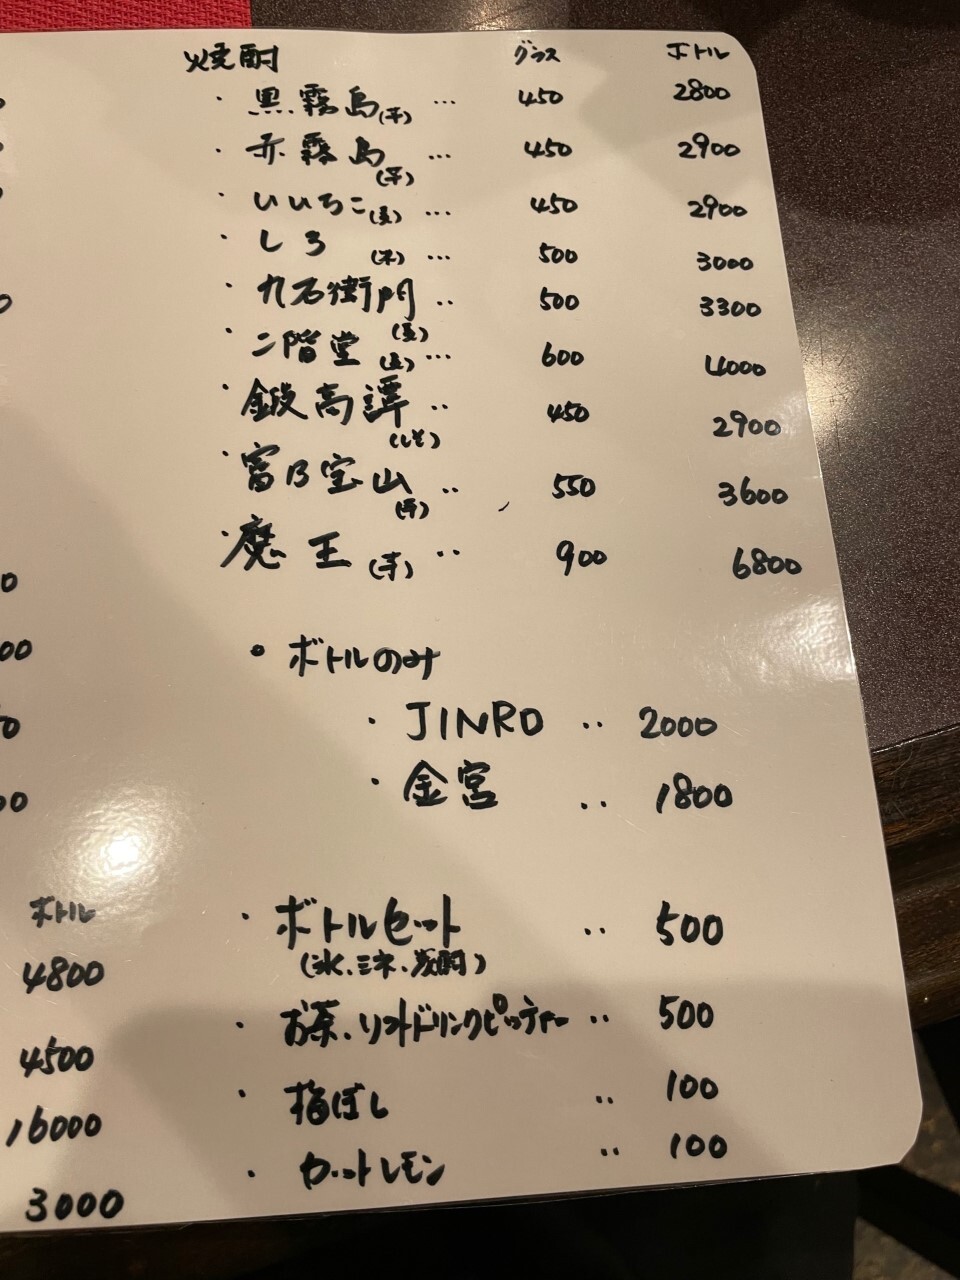 焼酎 グラス ボトル
・黒霧島(芋) … 450 2800
・赤霧島(芋) … 450 2900
・いいちこ(麦) … 450 2900
・しろ(米) … 500 3000
・九右衛門(麦) ‥ 500 3300
・二階堂(麦) … 600 4000
・鍛高譚(しそ) ‥ 450 2900
・富乃宝山(芋) ‥ 550 3600
・魔王(芋) ‥ 900 6800
・ボトルのみ
・JINRO ‥ 2000
・金宮 ‥ 1800
ボトル
4800
4500
16000
3000
・ボトルセット ‥ 500
(氷、ミネ、炭酸)
・お茶、ソフトドリンクピッチャー ‥ 500
・梅ぼし ‥ 100
・カットレモン ‥ 100